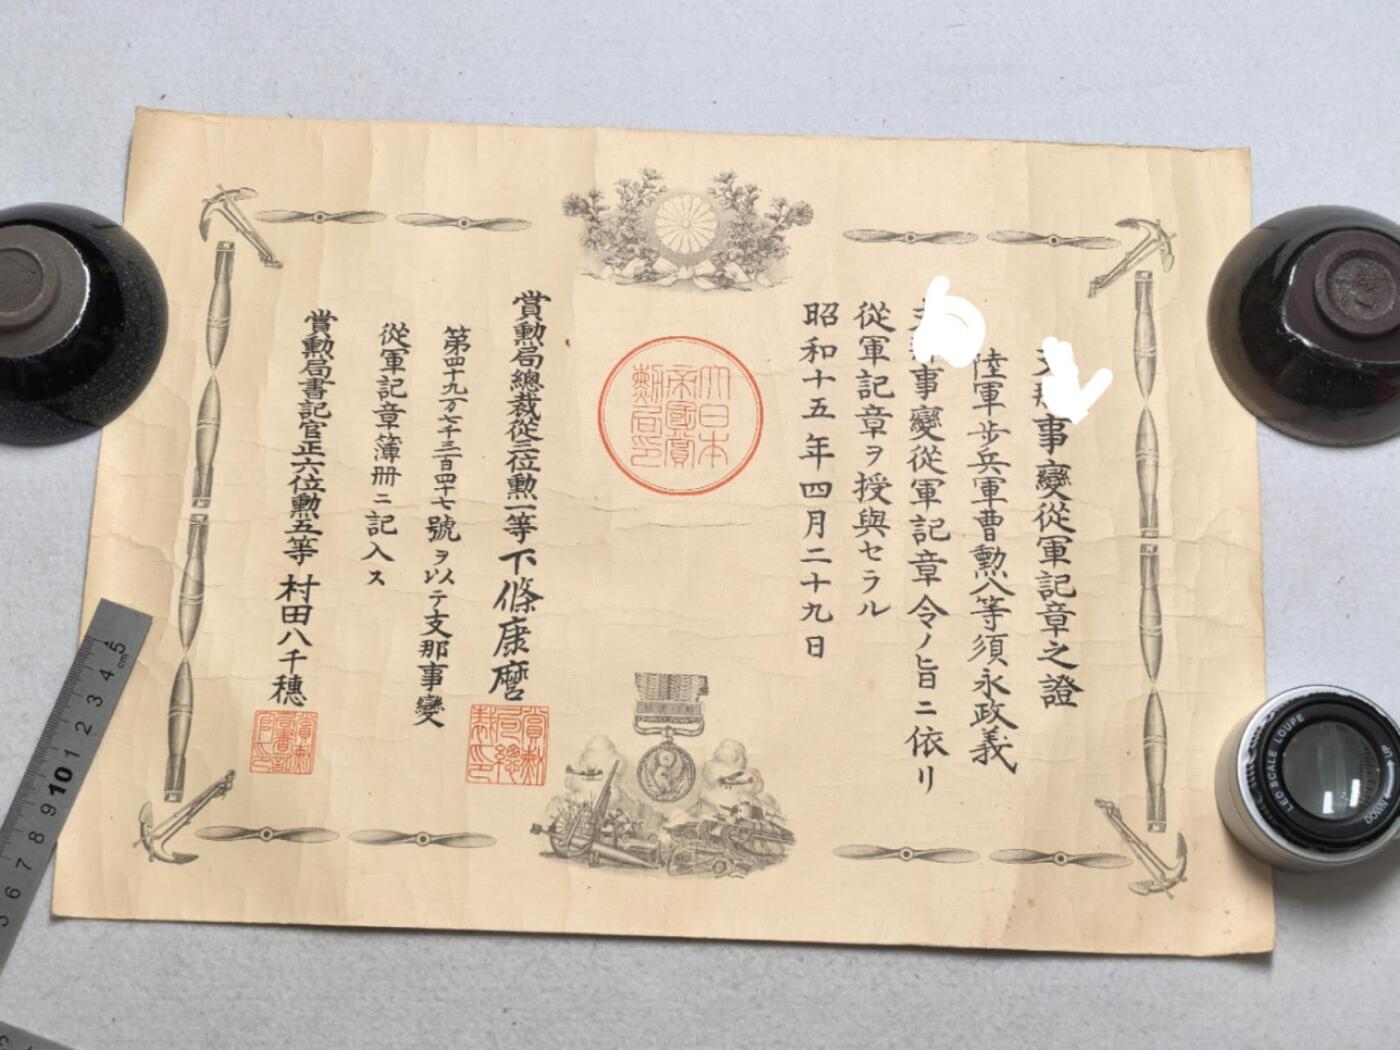 事變從軍記章之證
陸軍步兵軍曹勲八等須永政義
事變從軍記章令ノ旨ニ依リ
從軍記章ヲ授與セラル
昭和十五年四月二十九日
大日本
帝國賞
勲局印
賞勲局總裁從三位勲一等下條康麿
賞勲
局總
裁印
第四十九万七千三百四十七號ヲ以テ支那事變
從軍記章簿冊ニ記入ス
賞勲局書記官正六位勲五等村田八千穗
賞勲
局書記
官印
5
cm
4
3
2
1
10
9
8
7
6
LED SCALE LOUPE
UP